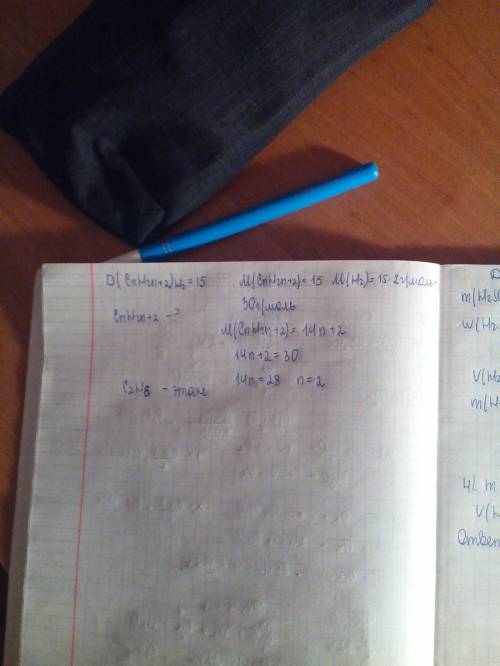 D(CnH2n+2)H2=15 M(CnH2n+2)=15·M(H2)=15·2г/моль=
30г/моль
CnH2n+2 -?
M(CnH2n+2)=14n+2
14n+2=30
14n=28 n=2
C2H6 - этан
m(H2SO
w(H2
V(H2
m(H
4). m
V(H
Ответ